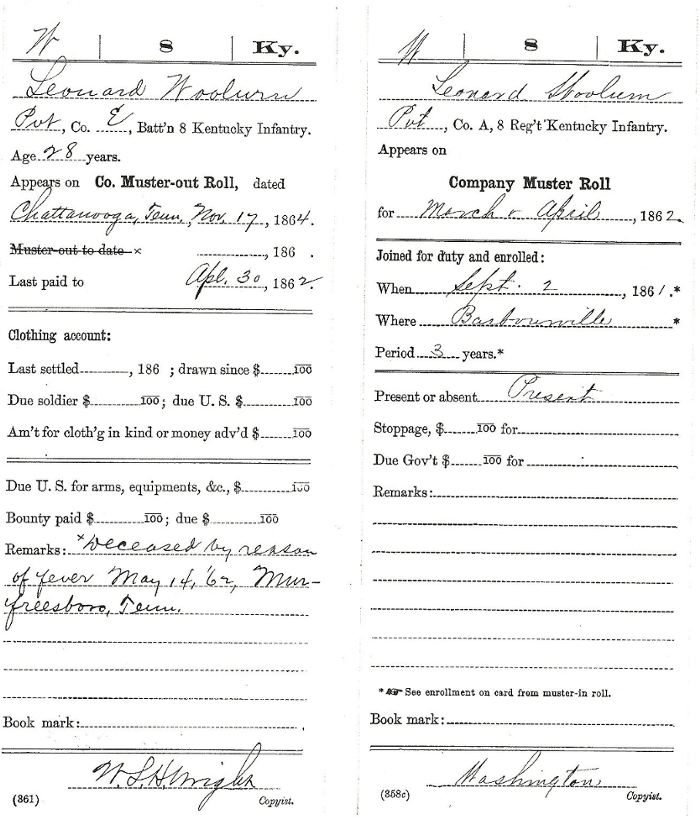 W | 8 | Ky.
Leonard Woolum
Pvt, Co. E, Batt'n 8 Kentucky Infantry.
Age 28 years.
Appears on Co. Muster-out Roll, dated
Chattanooga, Tenn, Nov. 17, 1864.
Muster-out to date × , 186 .
Last paid to Apl. 30, 1862.
Clothing account:
Last settled , 186 ; drawn since $ 100
Due soldier $ 100; due U. S. $ 100
Am't for cloth'g in kind or money adv'd $ 100
Due U. S. for arms, equipments, &c., $ 100
Bounty paid $ 100; due $ 100
Remarks: ×Deceased by reason
of fever May 14, '62, Mur-
freesboro, Tenn.
Book mark:
W. S. H. Wright
(361) Copyist.
W | 8 | Ky.
Leonard Woolum
Pvt, Co. A, 8 Reg't Kentucky Infantry.
Appears on
Company Muster Roll
for March & April, 1862.
Joined for duty and enrolled:
When Sept. 2, 1861.*
Where Barbourville *
Period 3 years.*
Present or absent Present
Stoppage, $ 100 for
Due Gov't $ 100 for
Remarks:
* ☞ See enrollment on card from muster-in roll.
Book mark:
Washington
(358c) Copyist.